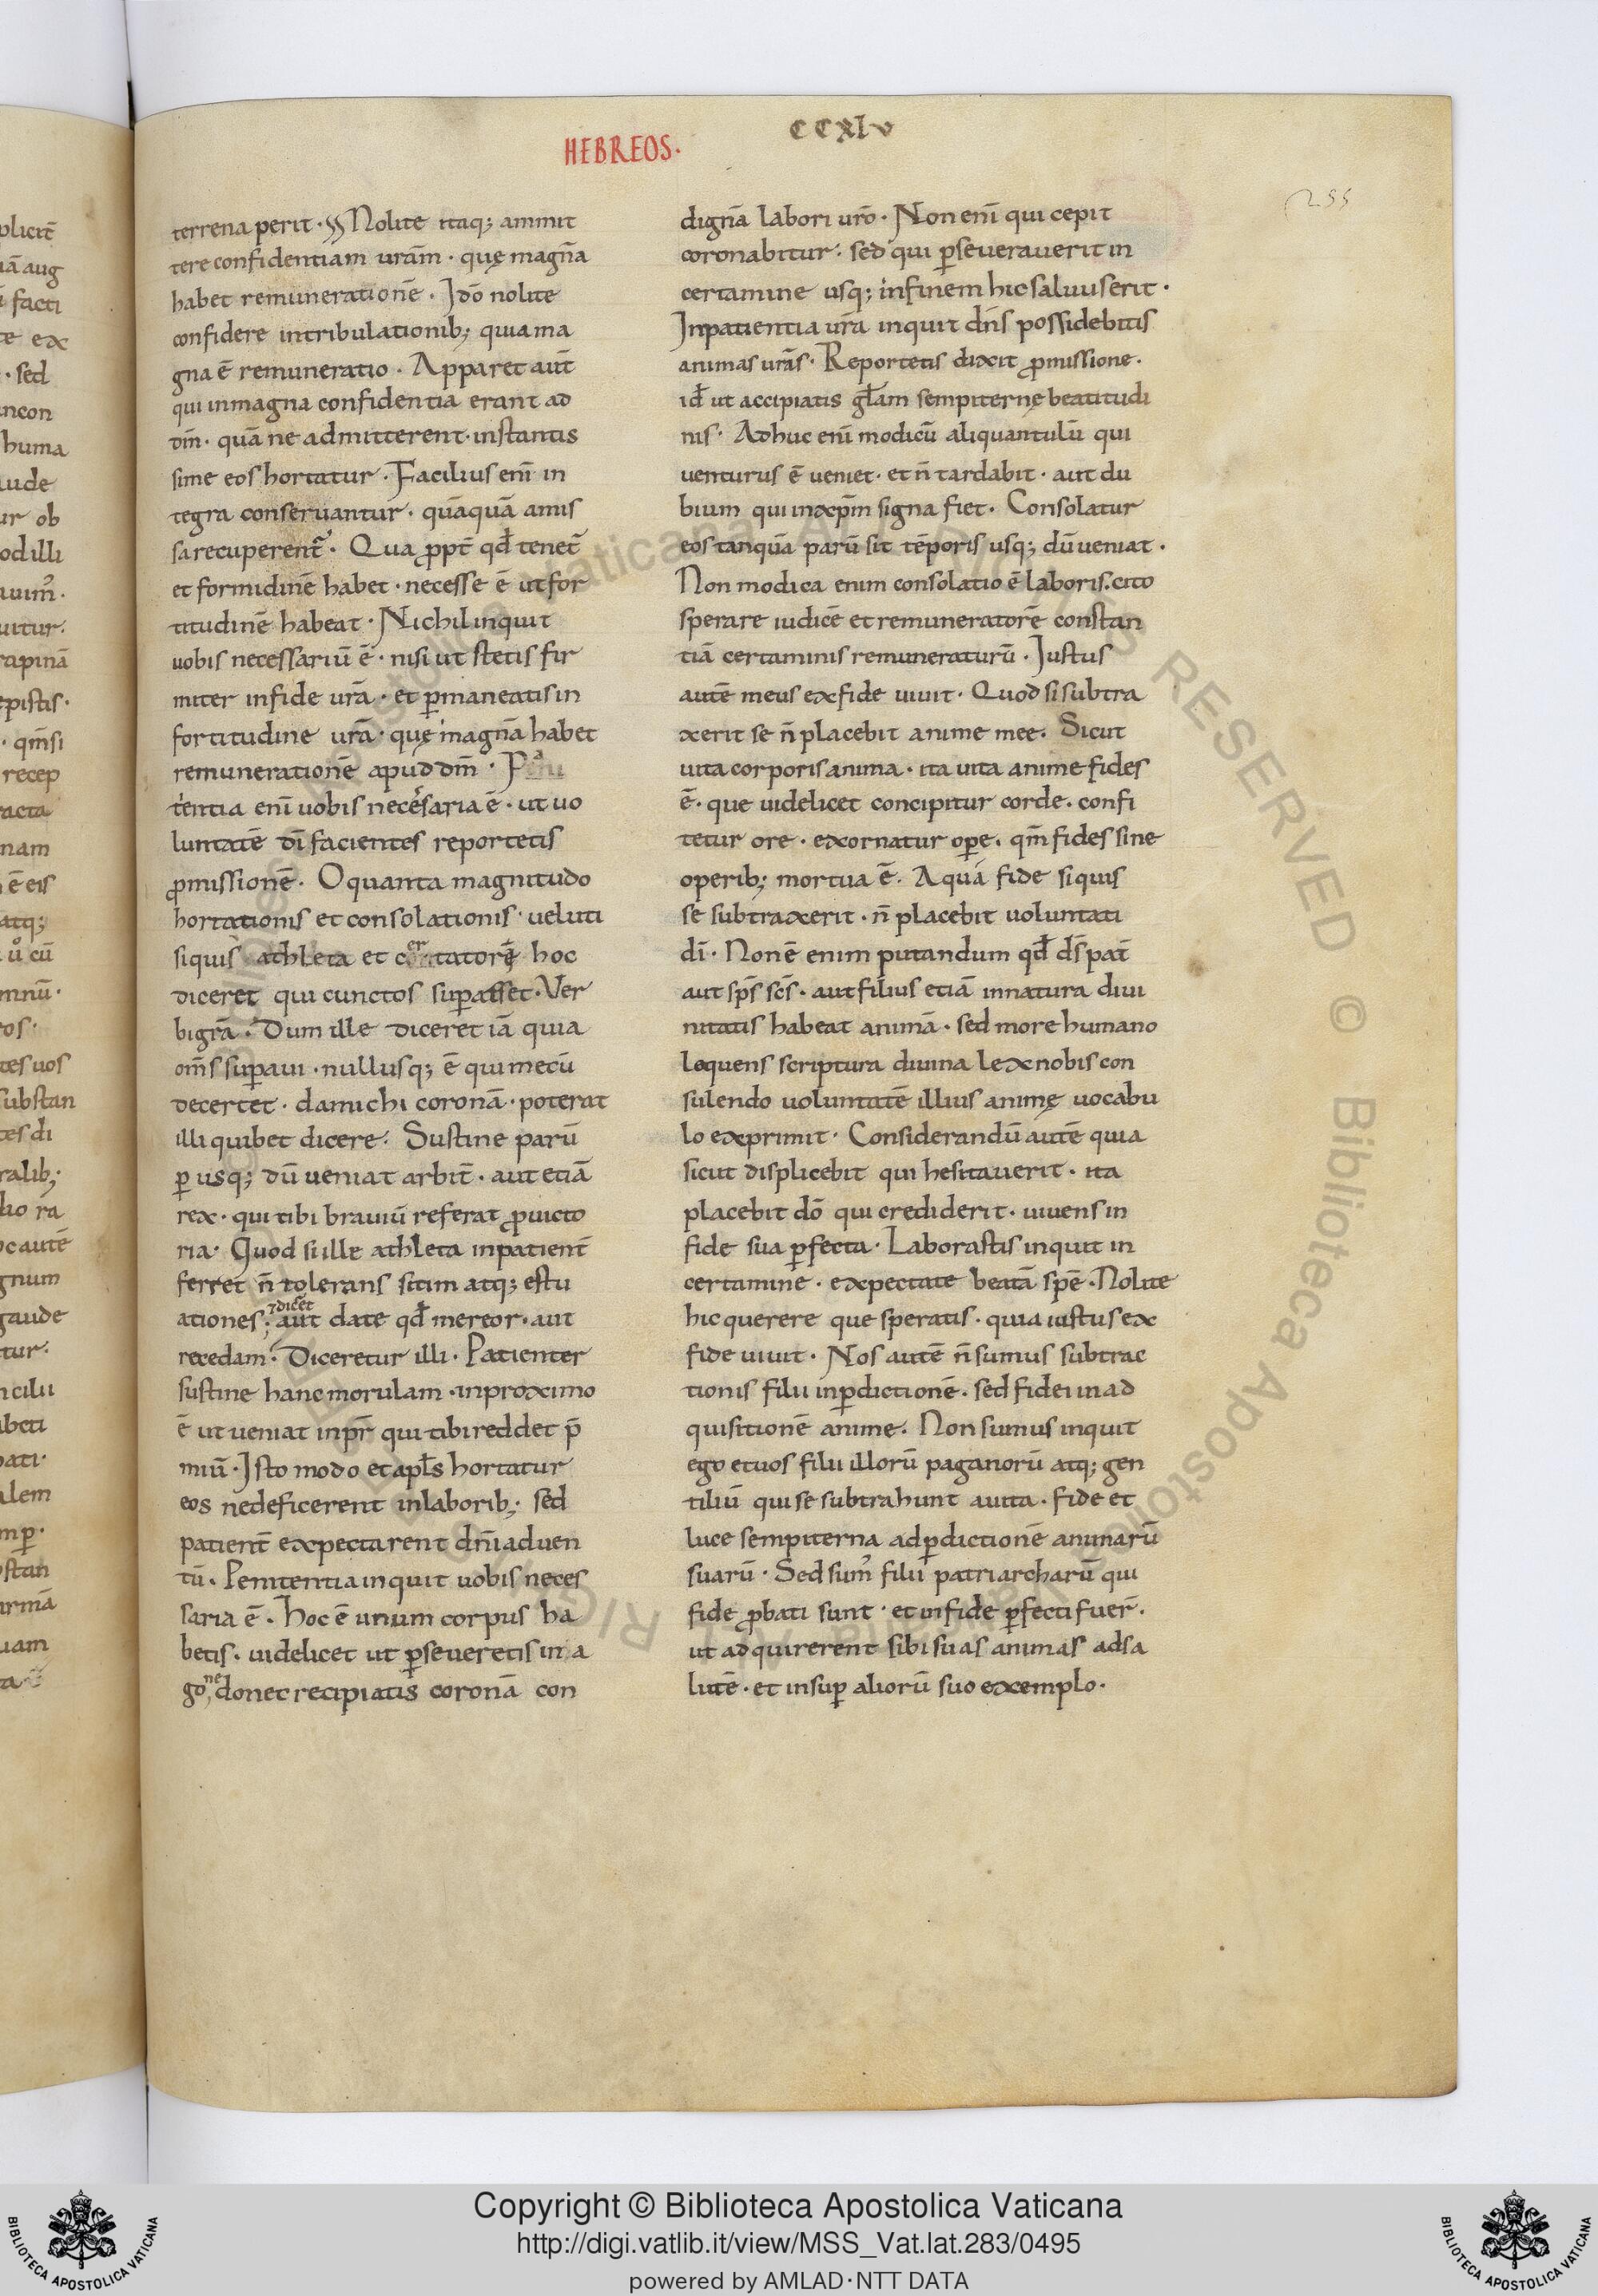 ccxlv
HEBREOS·
255
terrena perit · Nolite itaq; ammit
tere confidentiam urãm · quę magnã
habet remunerationẽ · Idõ nolite
confidere intribulationib; quia ma
gna ẽ remuneratio · Apparet aut̃
qui in magna confidentia erant ad
dm̃ · quã ne admitterent · instantis
sime eos hortatur · Facilius enĩ in
tegra conseruantur · quãquã amis
sa recuperent̃ · Qua ppt̃ qđ tenet̃
et formidinẽ habet · necesse ẽ ut for
titudinẽ habeat · Nichil inquit
uobis necessariũ ẽ · nisi ut stetis fir
miter in fide urã · et ꝑmaneatis in
fortitudine urã · quę magnã habet
remunerationẽ apud dm̃ ·
tentia enĩ uobis necessaria ẽ · ut uo
luntatẽ dĩ facientes reportetis
ꝓmissionẽ · O quanta magnitudo
hortationis et consolationis · ueluti
siquis athleta et certatorę hoc
diceret qui cunctos suꝑasset · Ver
bigrã · Dum ille diceret iã quia
om̃s suꝑaui · nullusq; ẽ qui mecũ
decertet · da michi coronã · poterat
illi quibet dicere · Sustine parũ
ꝑ usq; dũ ueniat arbit̃ · aut etiã
rex · qui tibi brauiũ referat ꝓ uicto
ria · Quod si ille athleta inpatient̃
ferret ñ tolerans sitim atq; estu
ationes · ⁊ dicet aut date qđ mereor · aut
recedam · Diceretur illi · Patienter
sustine hanc morulam · inproximo
ẽ ut ueniat inpr̃ qui tibi reddet p̃
miũ · Isto modo et apl̃s hortatur
eos ne deficerent in laborib; sed
patient̃ expectarent dñi aduen
tũ · Penitentia inquit uobis neces
saria ẽ · Hoc ẽ unum corpus ha
betis · uidelicet ut ꝑseueretis in a
gone, donec recipiatis coronã con
dignã labori urõ · Non enĩ qui cepit
coronabitur · sed qui ꝑseuerauerit in
certamine usq; in finem hic saluus erit ·
In patientia urã inquit dñs possidebitis
animas urãs · Reportetis dixit ꝓmissione ·
iđ ut accipiatis gl̃am sempiternę beatitudi
nis · Adhuc enĩ modicũ aliquantulũ qui
uenturus ẽ ueniet · et ñ tardabit · aut du
bium qui in xp̃m signa fiet · Consolatur
eos tanquã parũ sit tẽporis usq; dũ ueniat ·
Non modica enim consolatio ẽ laboris · cito
sperare iudicẽ et remuneratorẽ constan
tiã certaminis remuneraturũ · Iustus
autẽ meus ex fide uiuit · Quod si subtra
xerit se ñ placebit anime mee · Sicut
uita corporis anima · ita uita anime fides
ẽ · que uidelicet concipitur corde · confi
tetur ore · exornatur oꝑe · qm̃ fides sine
operib; mortua ẽ · A qua fide siquis
se subtraxerit · ñ placebit uoluntati
dĩ · Non ẽ enim putandum qđ ds̃ pat̃
aut sp̃s sc̃s · aut filius etiã in natura diui
nitatis habeat animã · sed more humano
loquens scriptura diuina lex nobis con
sulendo uoluntatẽ illius animę uocabu
lo exprimit · Considerandũ autẽ quia
sicut displicebit qui hesitauerit · ita
placebit dõ qui crediderit · uiuens in
fide sua ꝑfecta · Laborastis inquit in
certamine · expectate beatã spẽ · Nolite
hic querere que speratis · quia iustus ex
fide uiuit · Nos autẽ ñ sumus subtrac
tionis filii in ꝑdictionẽ · sed fidei in ad
quisitionẽ anime · Non sumus inquit
ego et uos filii illorũ paganorũ atq; gen
tiliũ qui se subtrahunt a uita · fide et
luce sempiterna ad ꝑdictionẽ animarũ
suarũ · Sed sum᾽ filii patriarcharũ qui
fide ꝓbati sunt · et in fide ꝑfecti fuer̃ ·
ut adquirerent sibi suas animas ad sa
lutẽ · et insuꝑ aliorũ suo exemplo ·
Copyright © Biblioteca Apostolica Vaticana
http://digi.vatlib.it/view/MSS_Vat.lat.283/0495
powered by AMLAD·NTT DATA